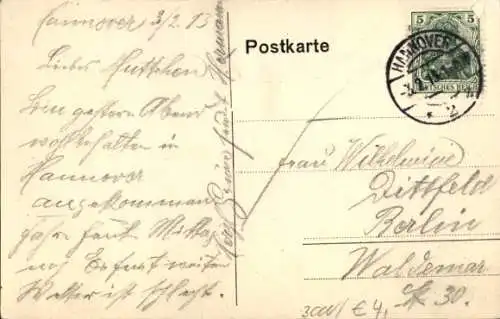 Hannover 3/2. 13
Liebes Muttchen
Bin gestern Abend
wohlbehalten in
Hannover
angekommen
fahre heut Mittag
nach Erfurt weiter
Wetter ist schlecht.
Hermann
Postkarte
5 5
HANNOVER
DEUTSCHES REICH
* 2
Frau Wilhelmine
Dittfeld
Berlin
Waldemar
Str. 30.
€ 4,